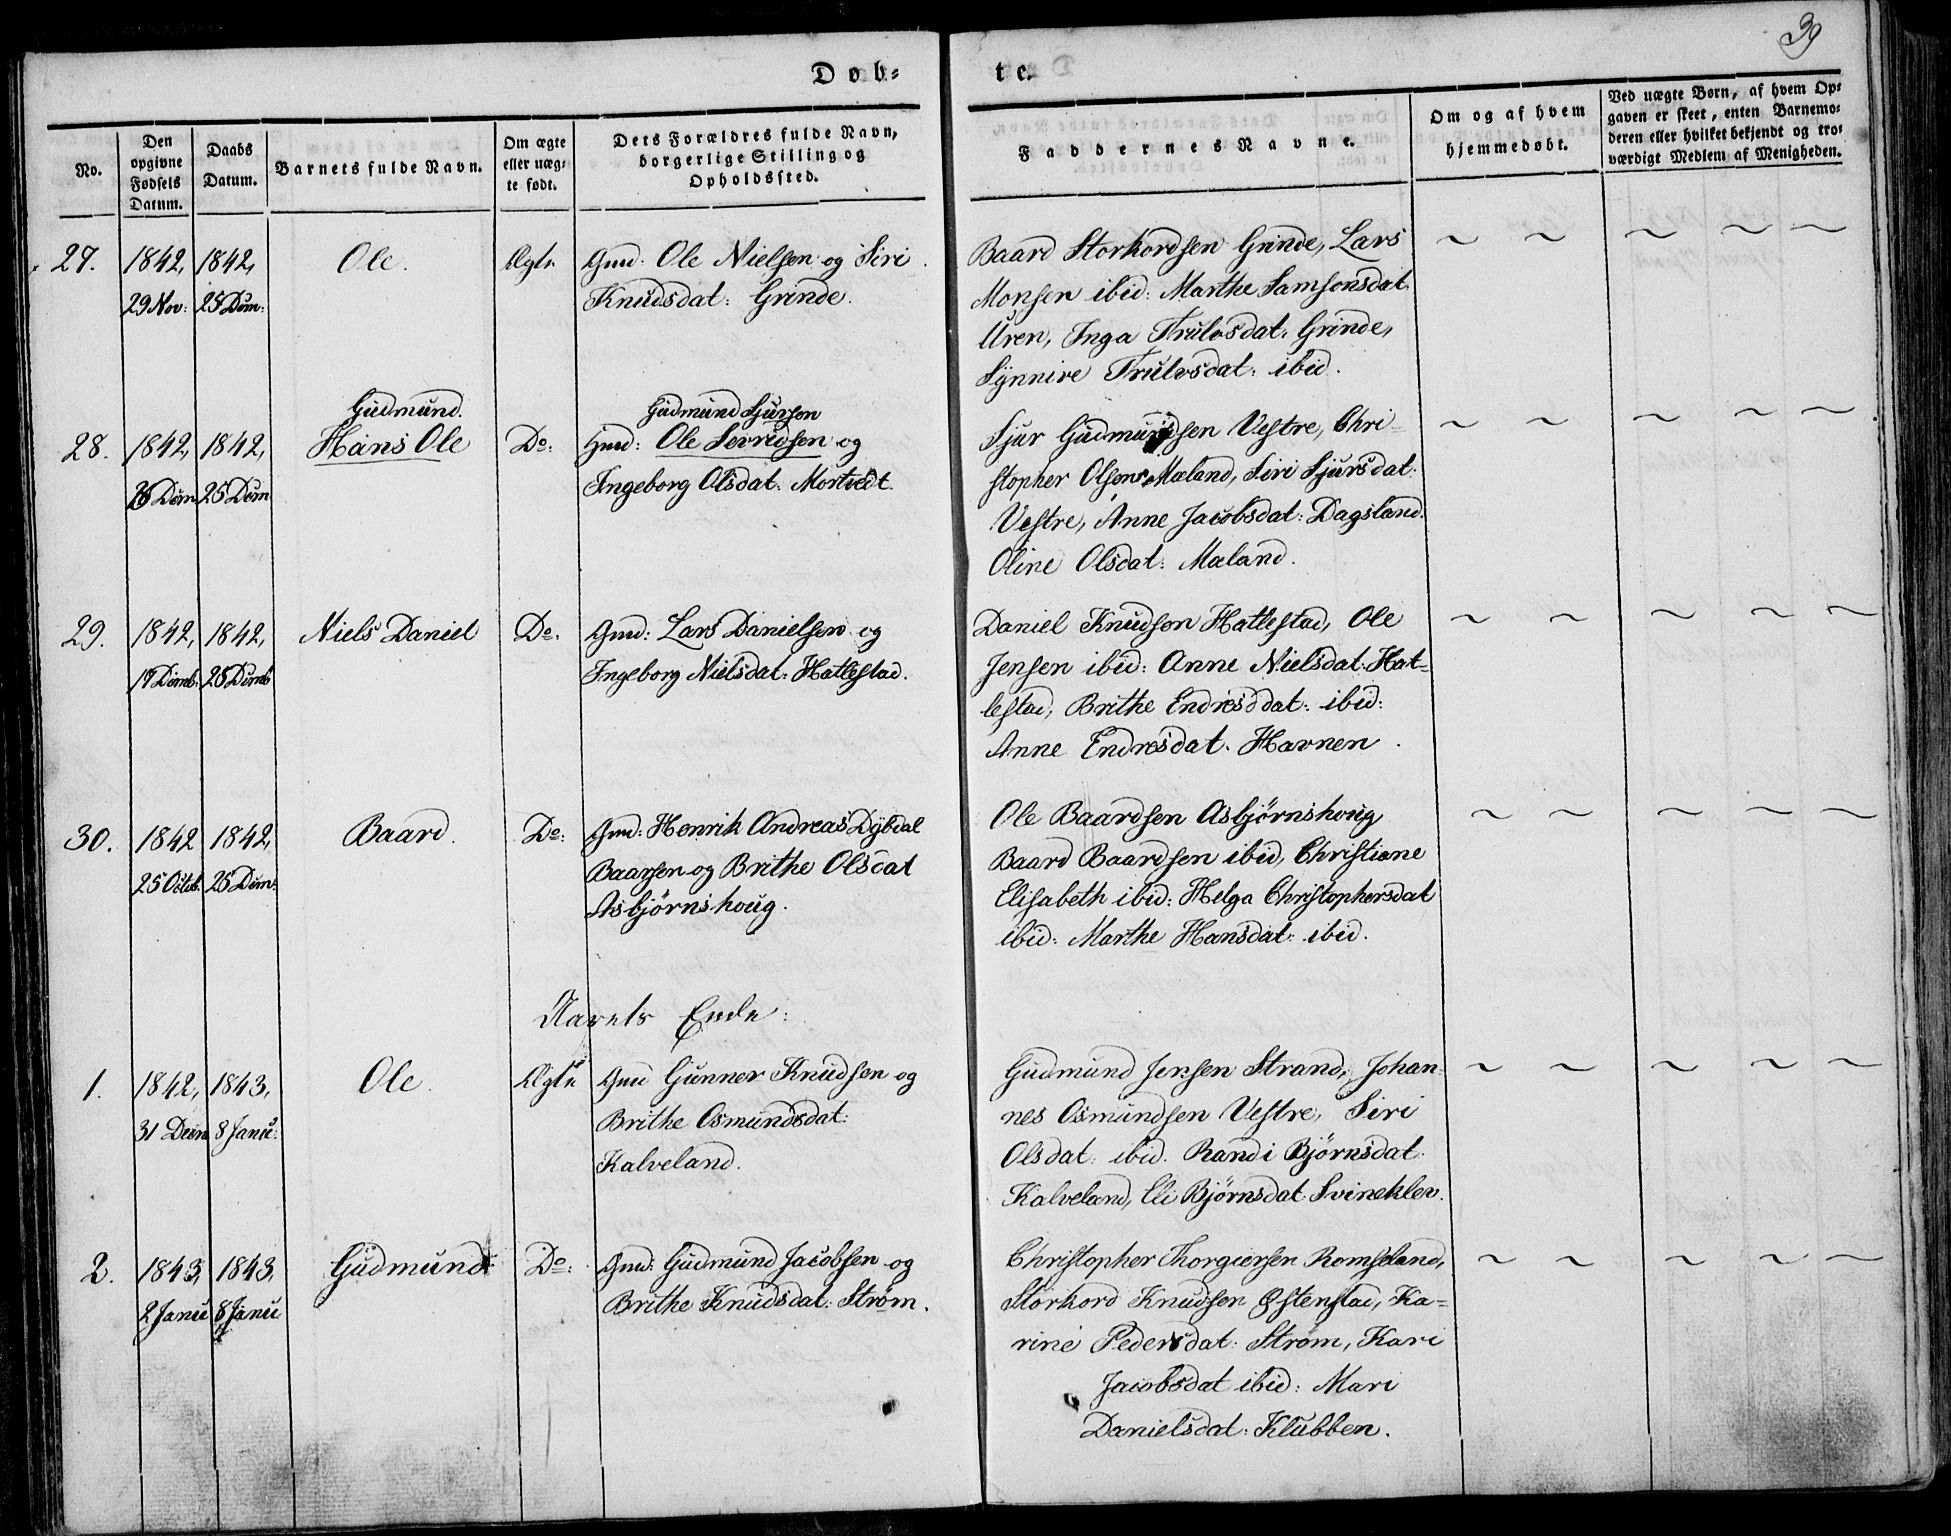 39
Døb-
te.
No.
Den
opgivne
Fødsels
Datum.
Daabs
Datum.
Barnets fulde Navn.
Om ægte
eller uæg-
te født.
Dets Forældres fulde Navn,
borgerlige Stilling og
Opholdssted.
Faddernes Navne.
Om og af hvem
hjemmedøbt.
Ved uægte Børn, af hvem Op-
gaven er skeet, enten Barnemo-
deren eller hvilket bekjendt og tro-
værdigt Medlem af Menigheden.
27. 1842, 1842, Ole. Ægte Gmd: Ole Nielsen og Siri
29 Nov: 25 Dcm: Knudsdat: Grinde.
Baard Storkordsen Grinde, Lars ~ ~ ~ ~ ~
Monsen ibid: Marthe Samsonsdat
Uren, Inga Trulvsdat: Grinde,
Synnive Trulvsdat: ibid.
Gudmund. Gudmund Sjurson
28. 1842, 1842, Hans Ole Do: Gmd: Ole Sevridsen og
Dcm 25 Dcm Ingeborg Olsdat: Mortvedt.
Sjur Gudmundsen Vestre, Chri- ~ ~ ~ ~ ~
stopher Olsen Mæland, Siri Sjursdat.
Vestre, Anne Jacobsdat: Dagsland.
Oline Olsdat: Mæland.
29. 1842, 1842, Niels Daniel Do. Gmd: Lars Danielsen og
17 Dcmb: 25 Dcmb Ingeborg Nielsdat: Hatlestad.
Daniel Knudson Hatlestad, Ole ~ ~ ~ ~ ~
Jensen ibid: Anne Nielsdat: Hat-
lestad, Brithe Endresddat: ibid:
Anne Endresdat. Havnen.
30. 1842 1842, Baard. Do: Gmd: Henrik Andreas Dybdal
25 Octob. 25 Dcm: Baarsen og Brithe Olsdat
Asbjørnshoug.
Ole Baardsen Asbjørnshoug, ~ ~ ~ ~ ~
Baard Baardsen ibid, Christiane
Elisabeth ibid: Helga Christophersdat
ibid: Marthe Hansdat: ibid.
Aarets Ende:
1. 1842, 1843, Ole. Ægte Gmd Gunner Knudsen og
31 Decm 8 Janu: Brithe Osmundsdat:
Kalveland.
Gudmund Jensen Strand, Johan- ~ ~ ~ ~ ~
nes Osmundsen Vestre, Siri
Olsdat: ibid. Randi Bjørnsdat.
Kalveland, Eli Bjørnsdat Svineklev.
2. 1843, 1843, Gudmund Do: Gmd: Gudmund Jacobsen og
2 Janu 8 Janu Brithe Knudsdat: Strøm.
Christopher Thorgiersen Romseland, ~ ~ ~ ~ ~
Storkord Knudsen Østenstad, Ka-
rine Pedersdat: Strøm, Kari
Jacobsdat ibid: Mari
Danielsdat: Klubben.